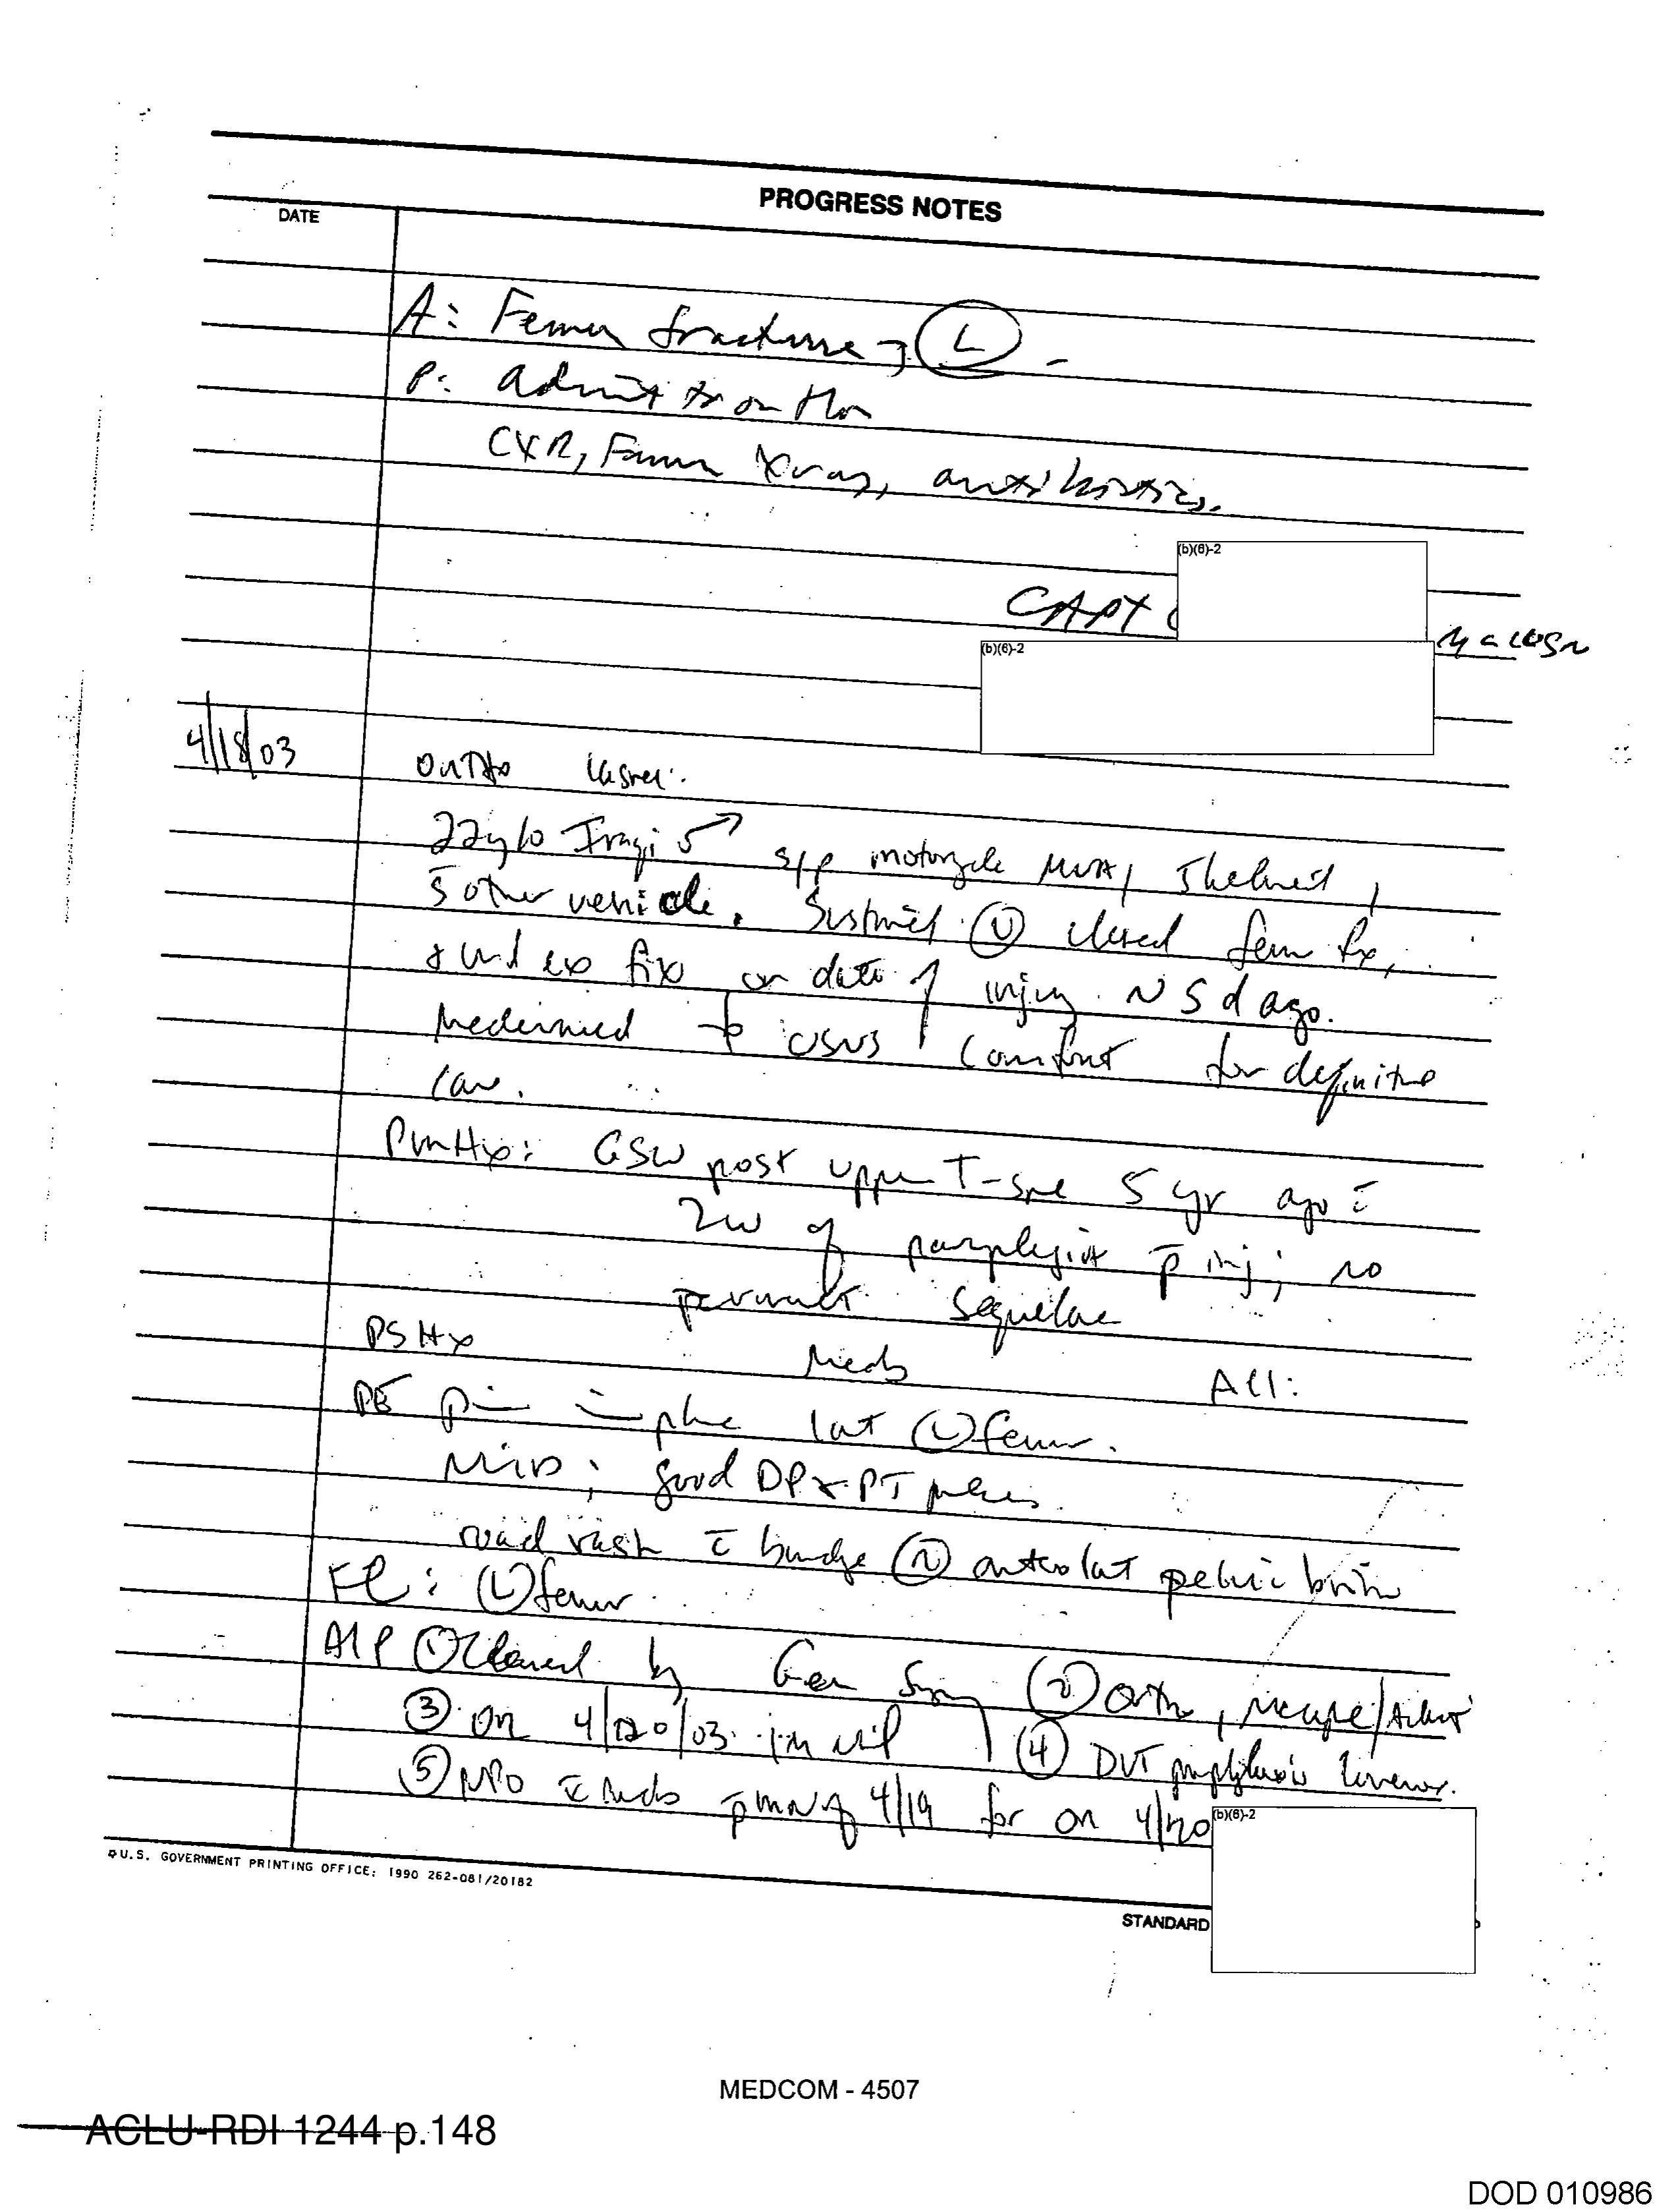 PROGRESS NOTES
DATE
A: Femur fracture, L
P: admit to ortho
CXR, Femur Xray, antibiotics.
(b)(6)-2
CAPT
(b)(6)-2
4/18/03
ORTHO
22 y/o Iraqi ♂ s/p motorcycle MVA, s̄ helmet,
s̄ other vehicle. Sustained L closed femur fx,
ex fix on date of injury ~ 5 d ago.
to USNS Comfort for definitive
care.
PmHx: GSW post upper T-spine 5 yr ago c̄
2w of paraplegia p̄ inj; no
permanent sequelae
PSHx Meds All:
PE pin in place lat L femur.
NVID; good DP + PT pulses
road rash c̄ bandage anterolat pelvic brim
L femur
A/P ① Cleared by Gen Surg ② Ortho,
③ OR 4/20/03 IM nail ④ DVT prophylaxis lovenox.
⑤ NPO p̄ MN of 4/19 for OR 4/20
(b)(6)-2
U.S. GOVERNMENT PRINTING OFFICE: 1990 262-081/20182
STANDARD
MEDCOM - 4507
ACLU-RDI 1244 p.148
DOD 010986